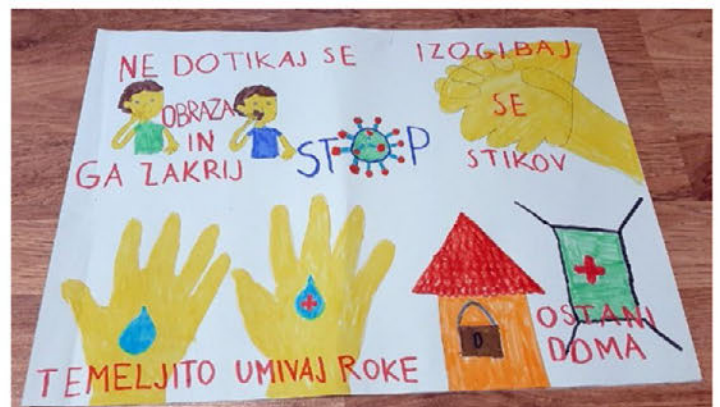 NE DOTIKAJ SE
OBRAZA
IN
GA ZAKRIJ
STOP
IZOGIBAJ
SE
STIKOV
TEMELJITO UMIVAJ ROKE
D
OSTANI
DOMA